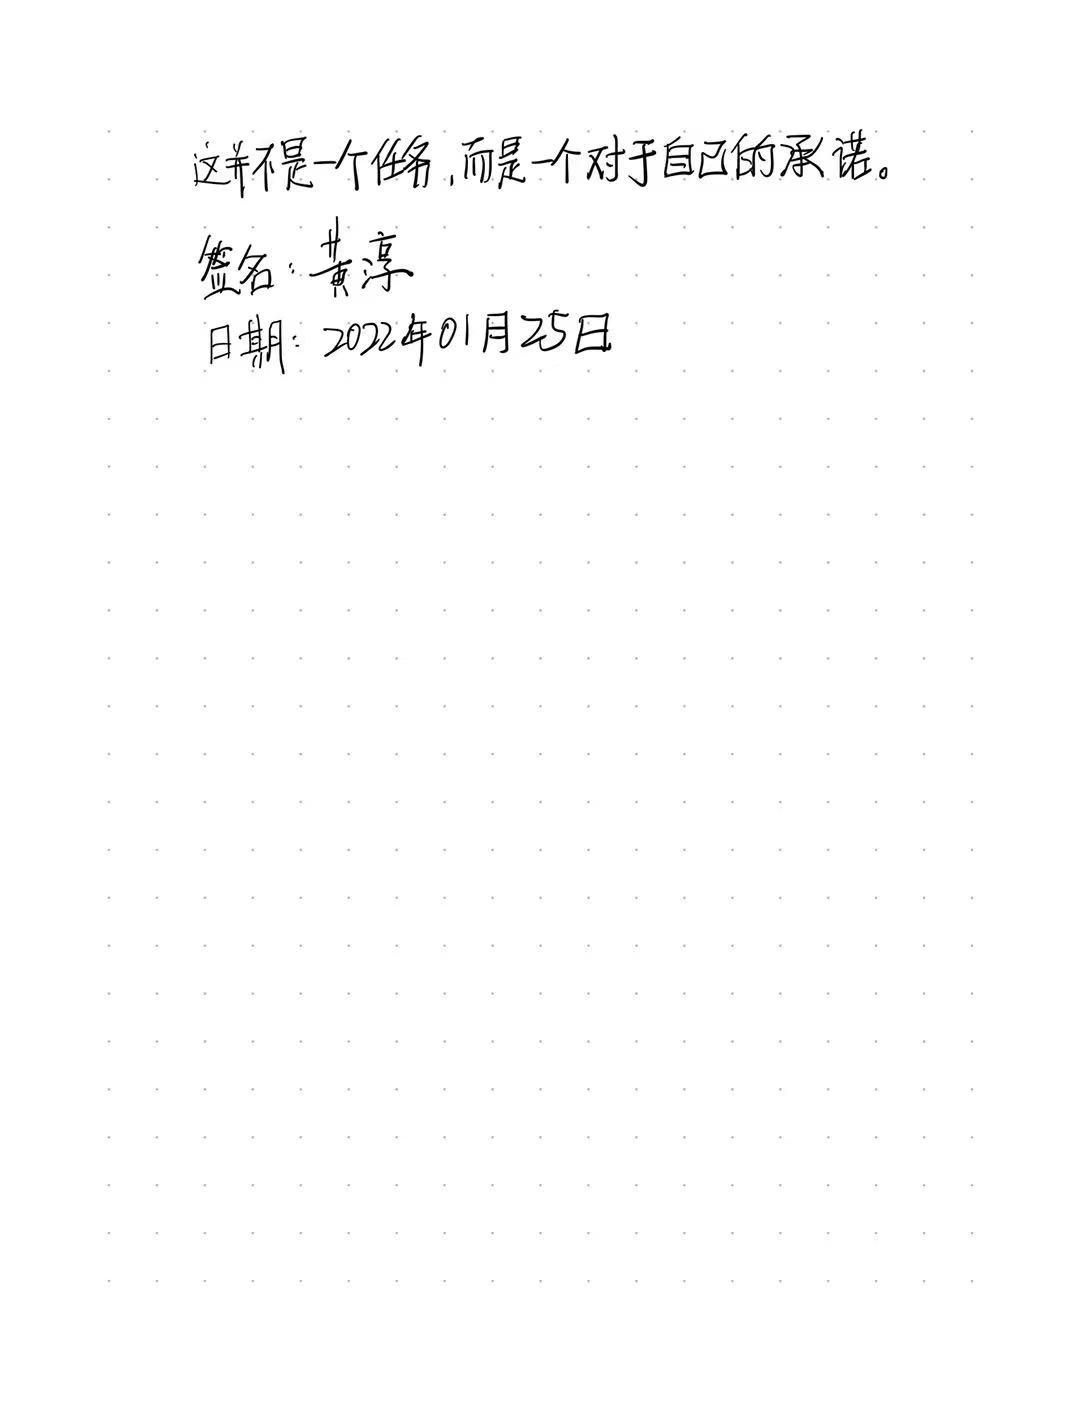 这并不是一个任务，而是一个对于自己的承诺。
签名：黄淳
日期：2022年01月25日